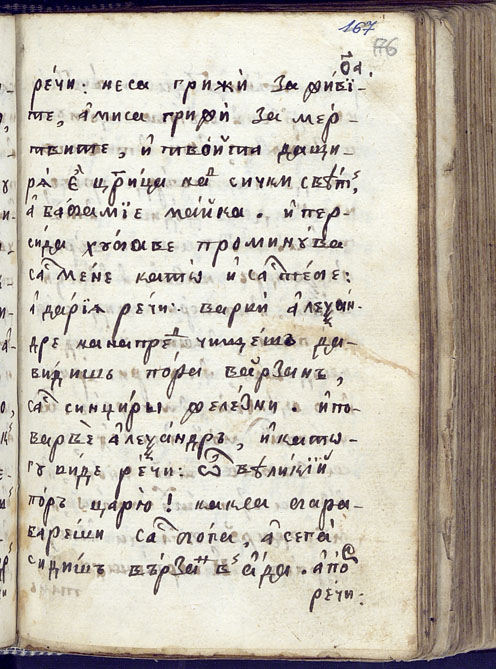 167
76
речи. неса грижѝ за живї-
те, а҆миса грижи за мер-
твите, и҆ твои҆та дащи-
рѧ є҆ црица на сички свѣт,
а҆ ваѳамїе майка. и҆пер-
сида хꙋбаве проминꙋва
са мене катѡ и҆ са тебе:
а҆ дарїѧ речи: варкѝ а҆леѯан-
дре нанапре чищешъ да-
видишь пора варзанъ,
са синцири железни. и҆по-
варвѐ а҆леѯандръ, и҆катѡ-
гꙋ виде речи: ѽ вѣликїй
поръ царю! какса ѡгара-
вареши са гопа, а҆ сега
сидишъ вързан в а҆да. а҆по
речи: